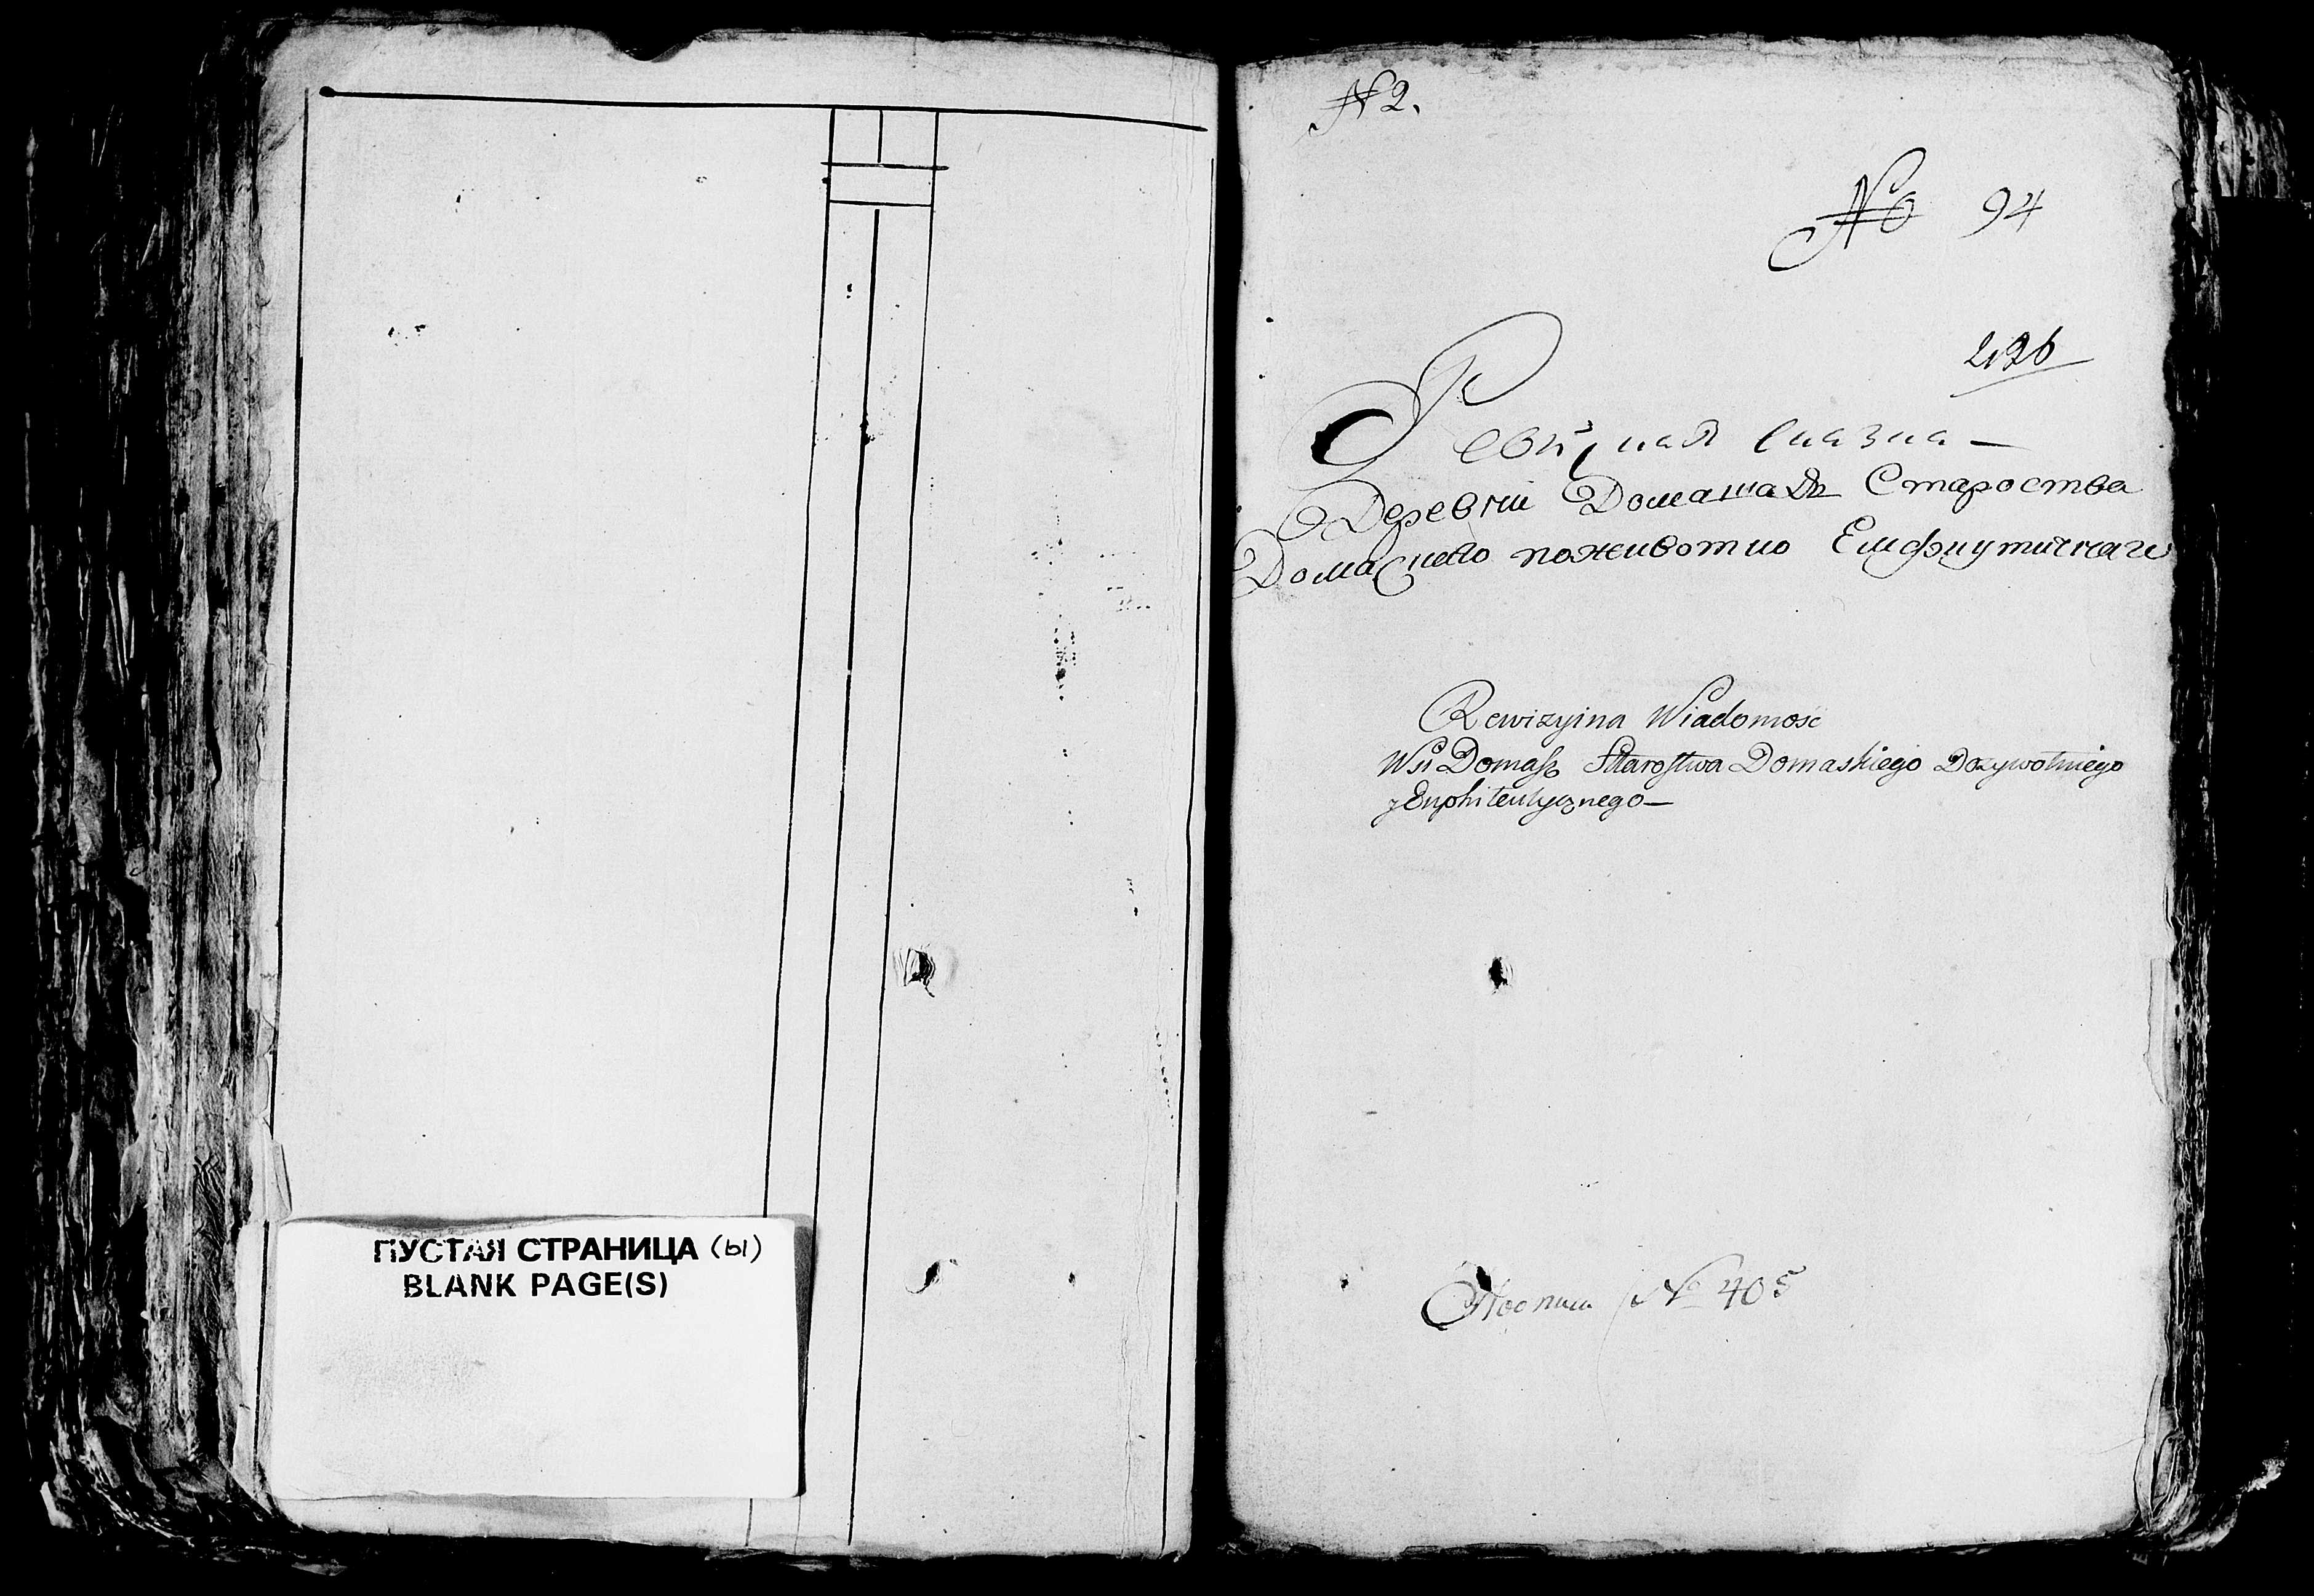 ПУСТАЯ СТРАНИЦА (ы)
BLANK PAGE(S)
№ 2.
№ 94
Ревизная Сказка —
Деревни Домаша Староства
Домаскаго поживотно Емфиутичнаго
Rewizyina Wiadomosc
Wsi Domasz Starostwa Domaskiego Dozywotniego
y Enphiteutycznego —
№ 405